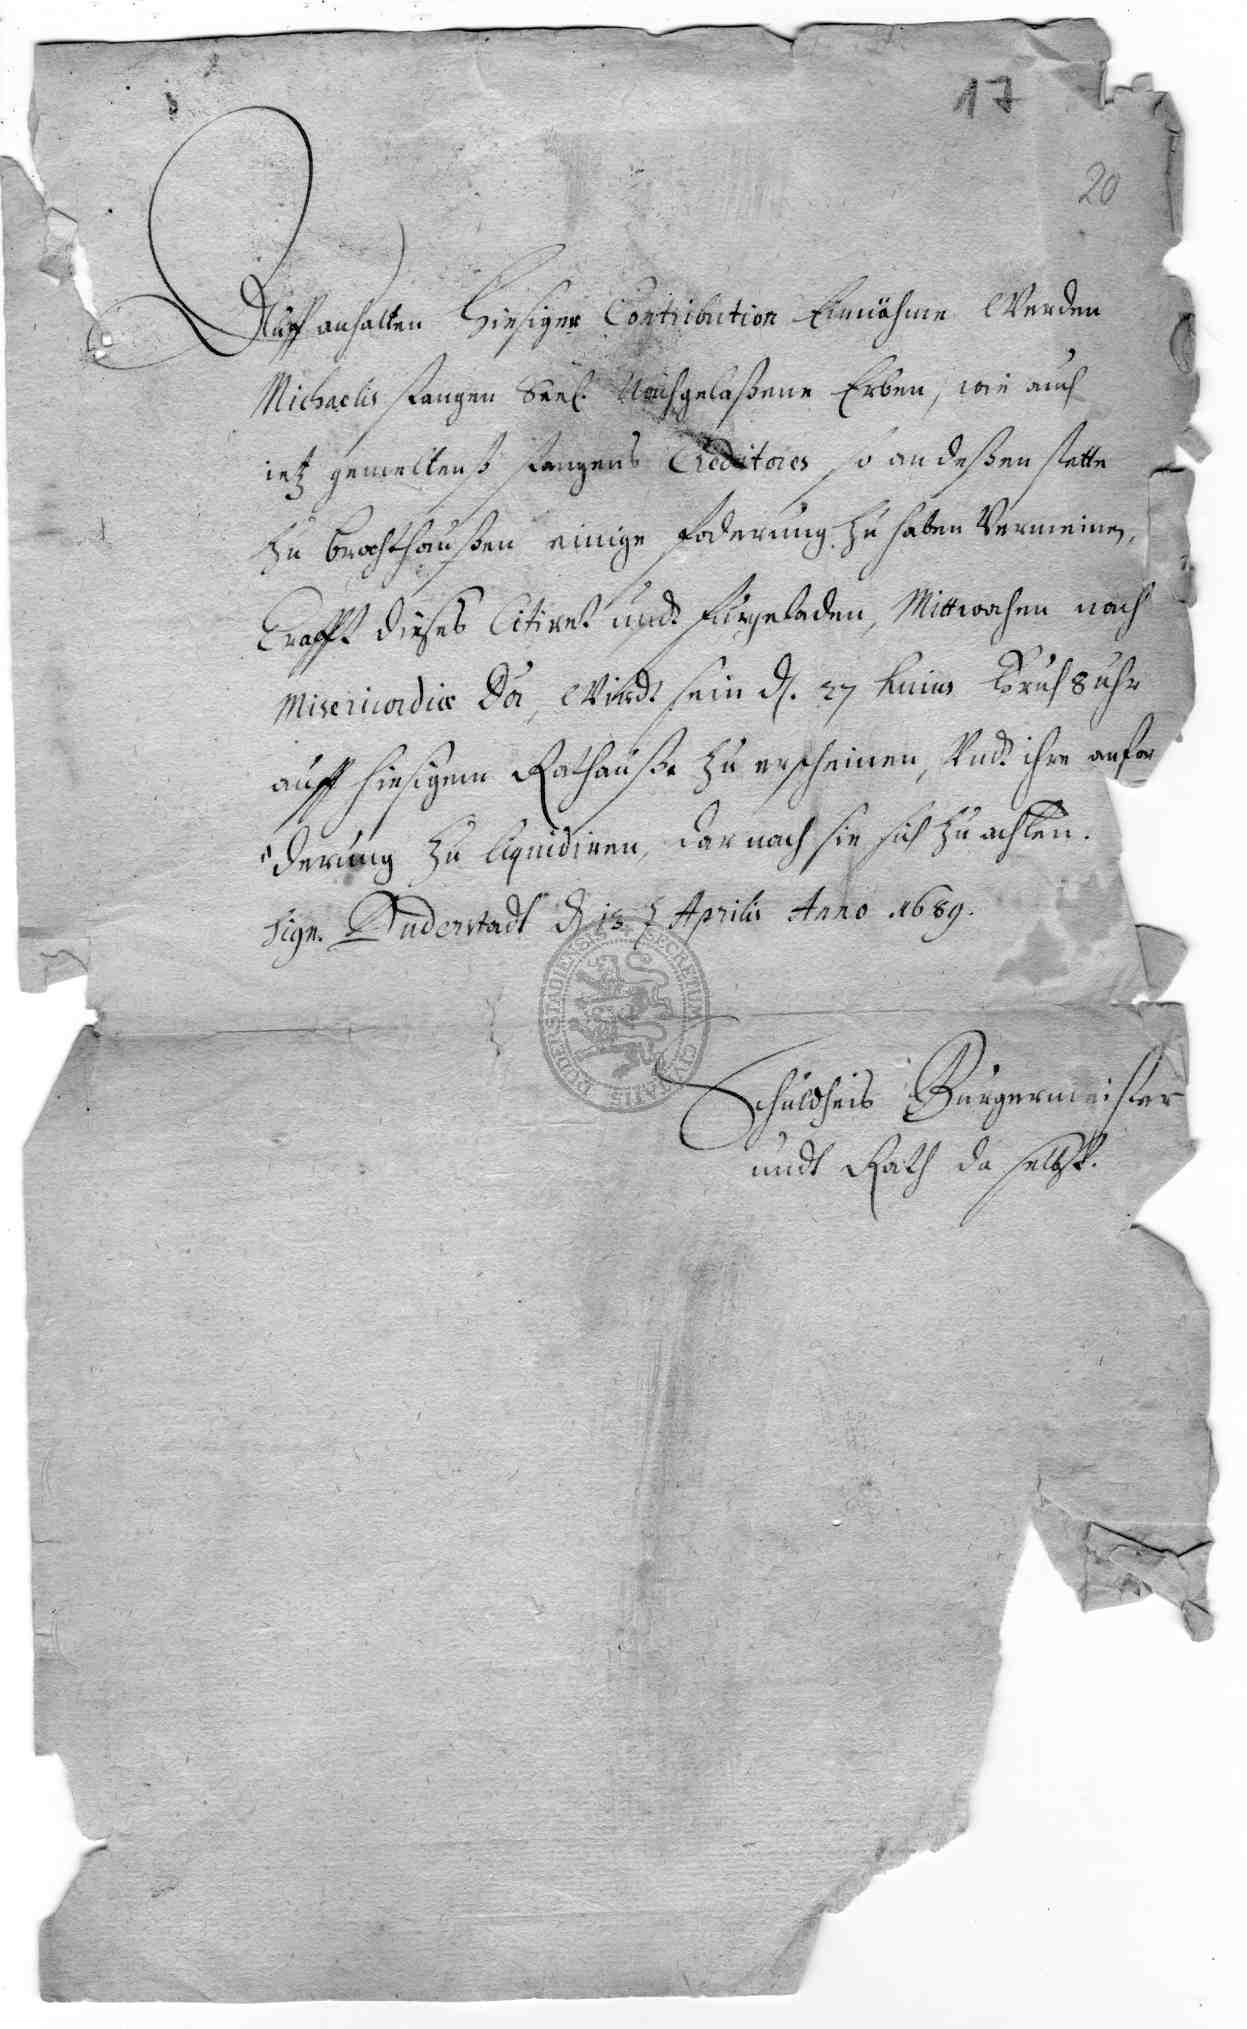 17
20
Auff anhalten Hiesiger Contribution Einnahme Werden
Michaelis Stangen Seel. Nachgelaßene Erben, wie auch
ietz gemeltenß Stangens Creditores so an deßen stette
zu Brochthaußen einige foderung zu haben Vermeinen,
Crafft dieses Citiret undt fürgeladen, Mittwochen nach
Misericordiae Dni, Wirdt sein d. 27 huius früh 8 uhr
auff hiesigem Rathauße zu erscheinen, Undt ihre anfor
derung zu liquidiren, darnach sie sich zu achten.
Sign. Duderstadt d 13 t Aprilis Anno 1689.
SECRETUM CIVITATIS DUDERSTADIENSIS
Schuldheis Bürgermeister
undt Rath da selbst.